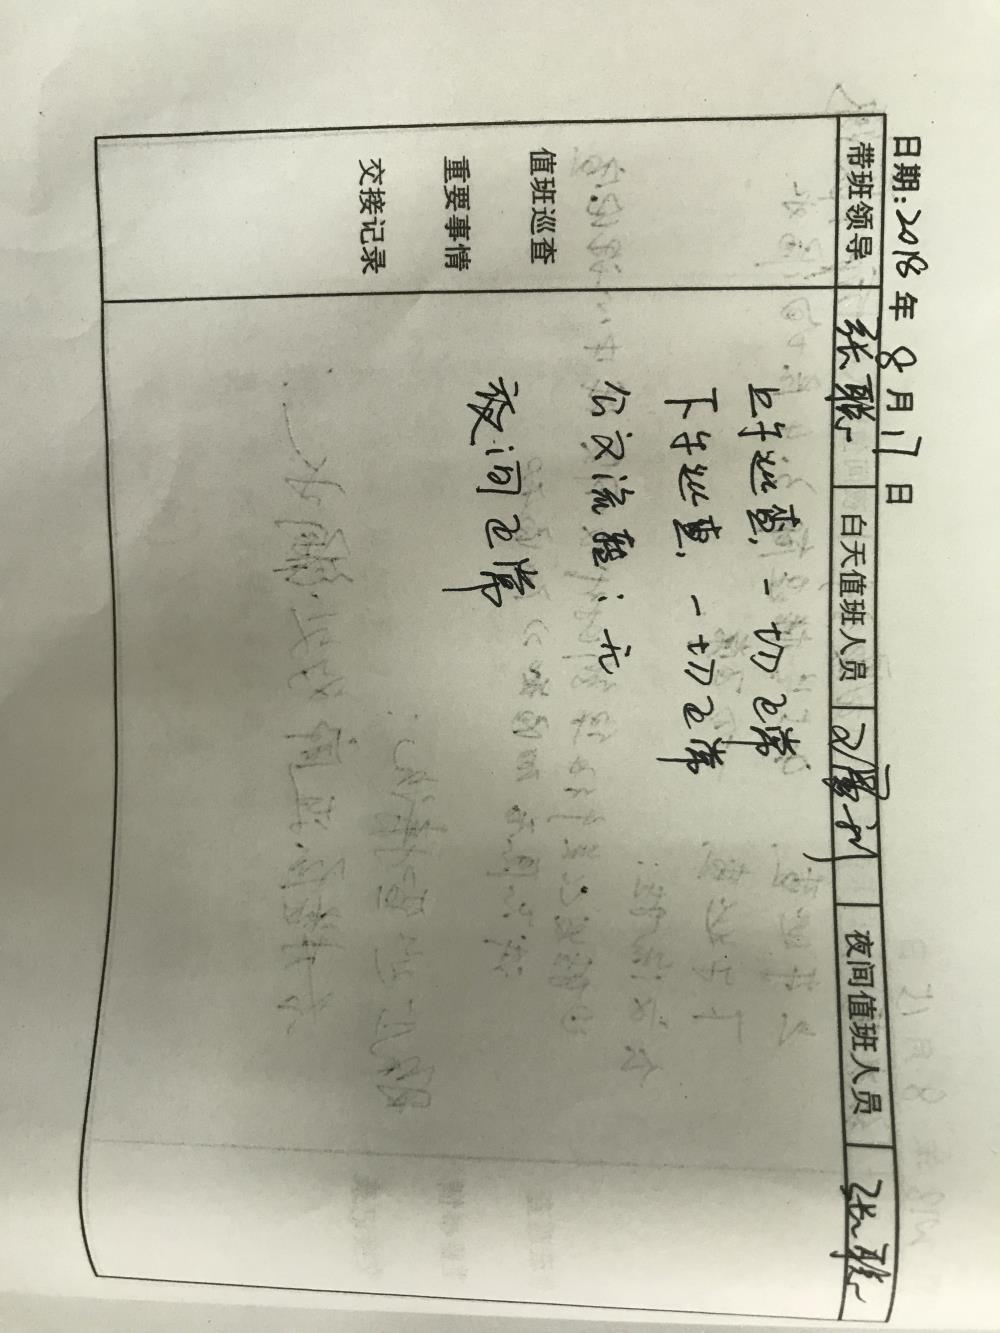 日期:2018年8月17日
带班领导 张 白天值班人员 夜间值班人员 张
值班巡查
重要事情
交接记录
上午巡查,一切正常
下午巡查,一切正常
公文流程:无
夜间正常